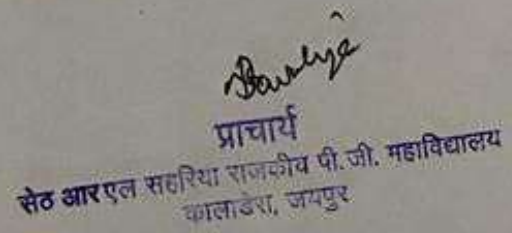 प्राचार्य
सेठ आरएल सहरिया राजकीय पी.जी. महाविद्यालय
कालाडेरा, जयपुर